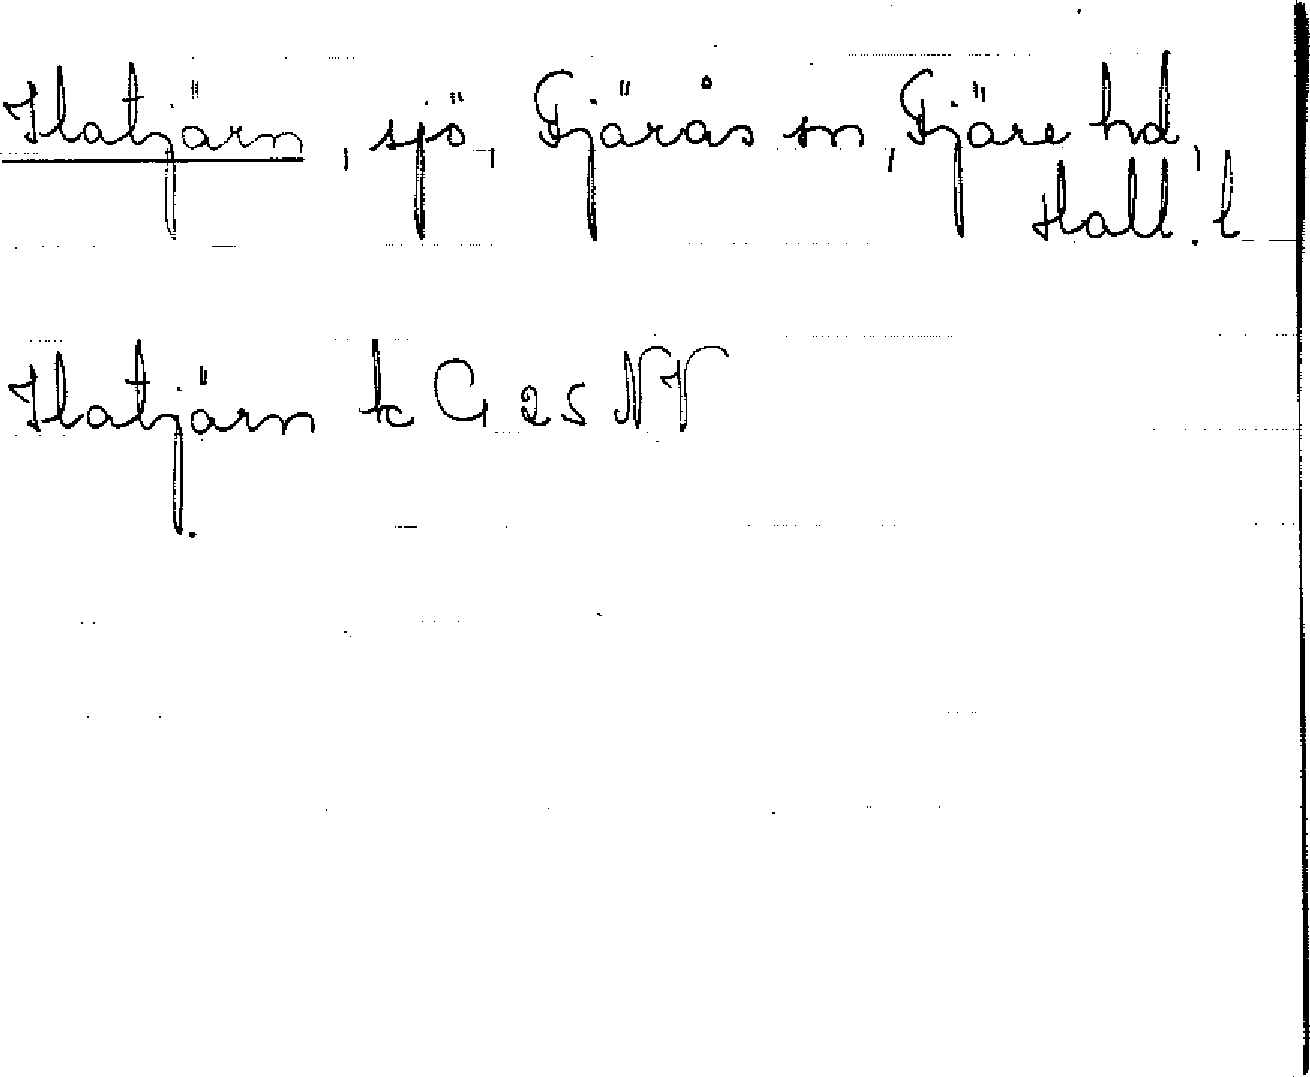 Hatjärn, sjö, Fjärås sn, Fjäre hd,
Hall. l
Hatjärn k G 25 NV